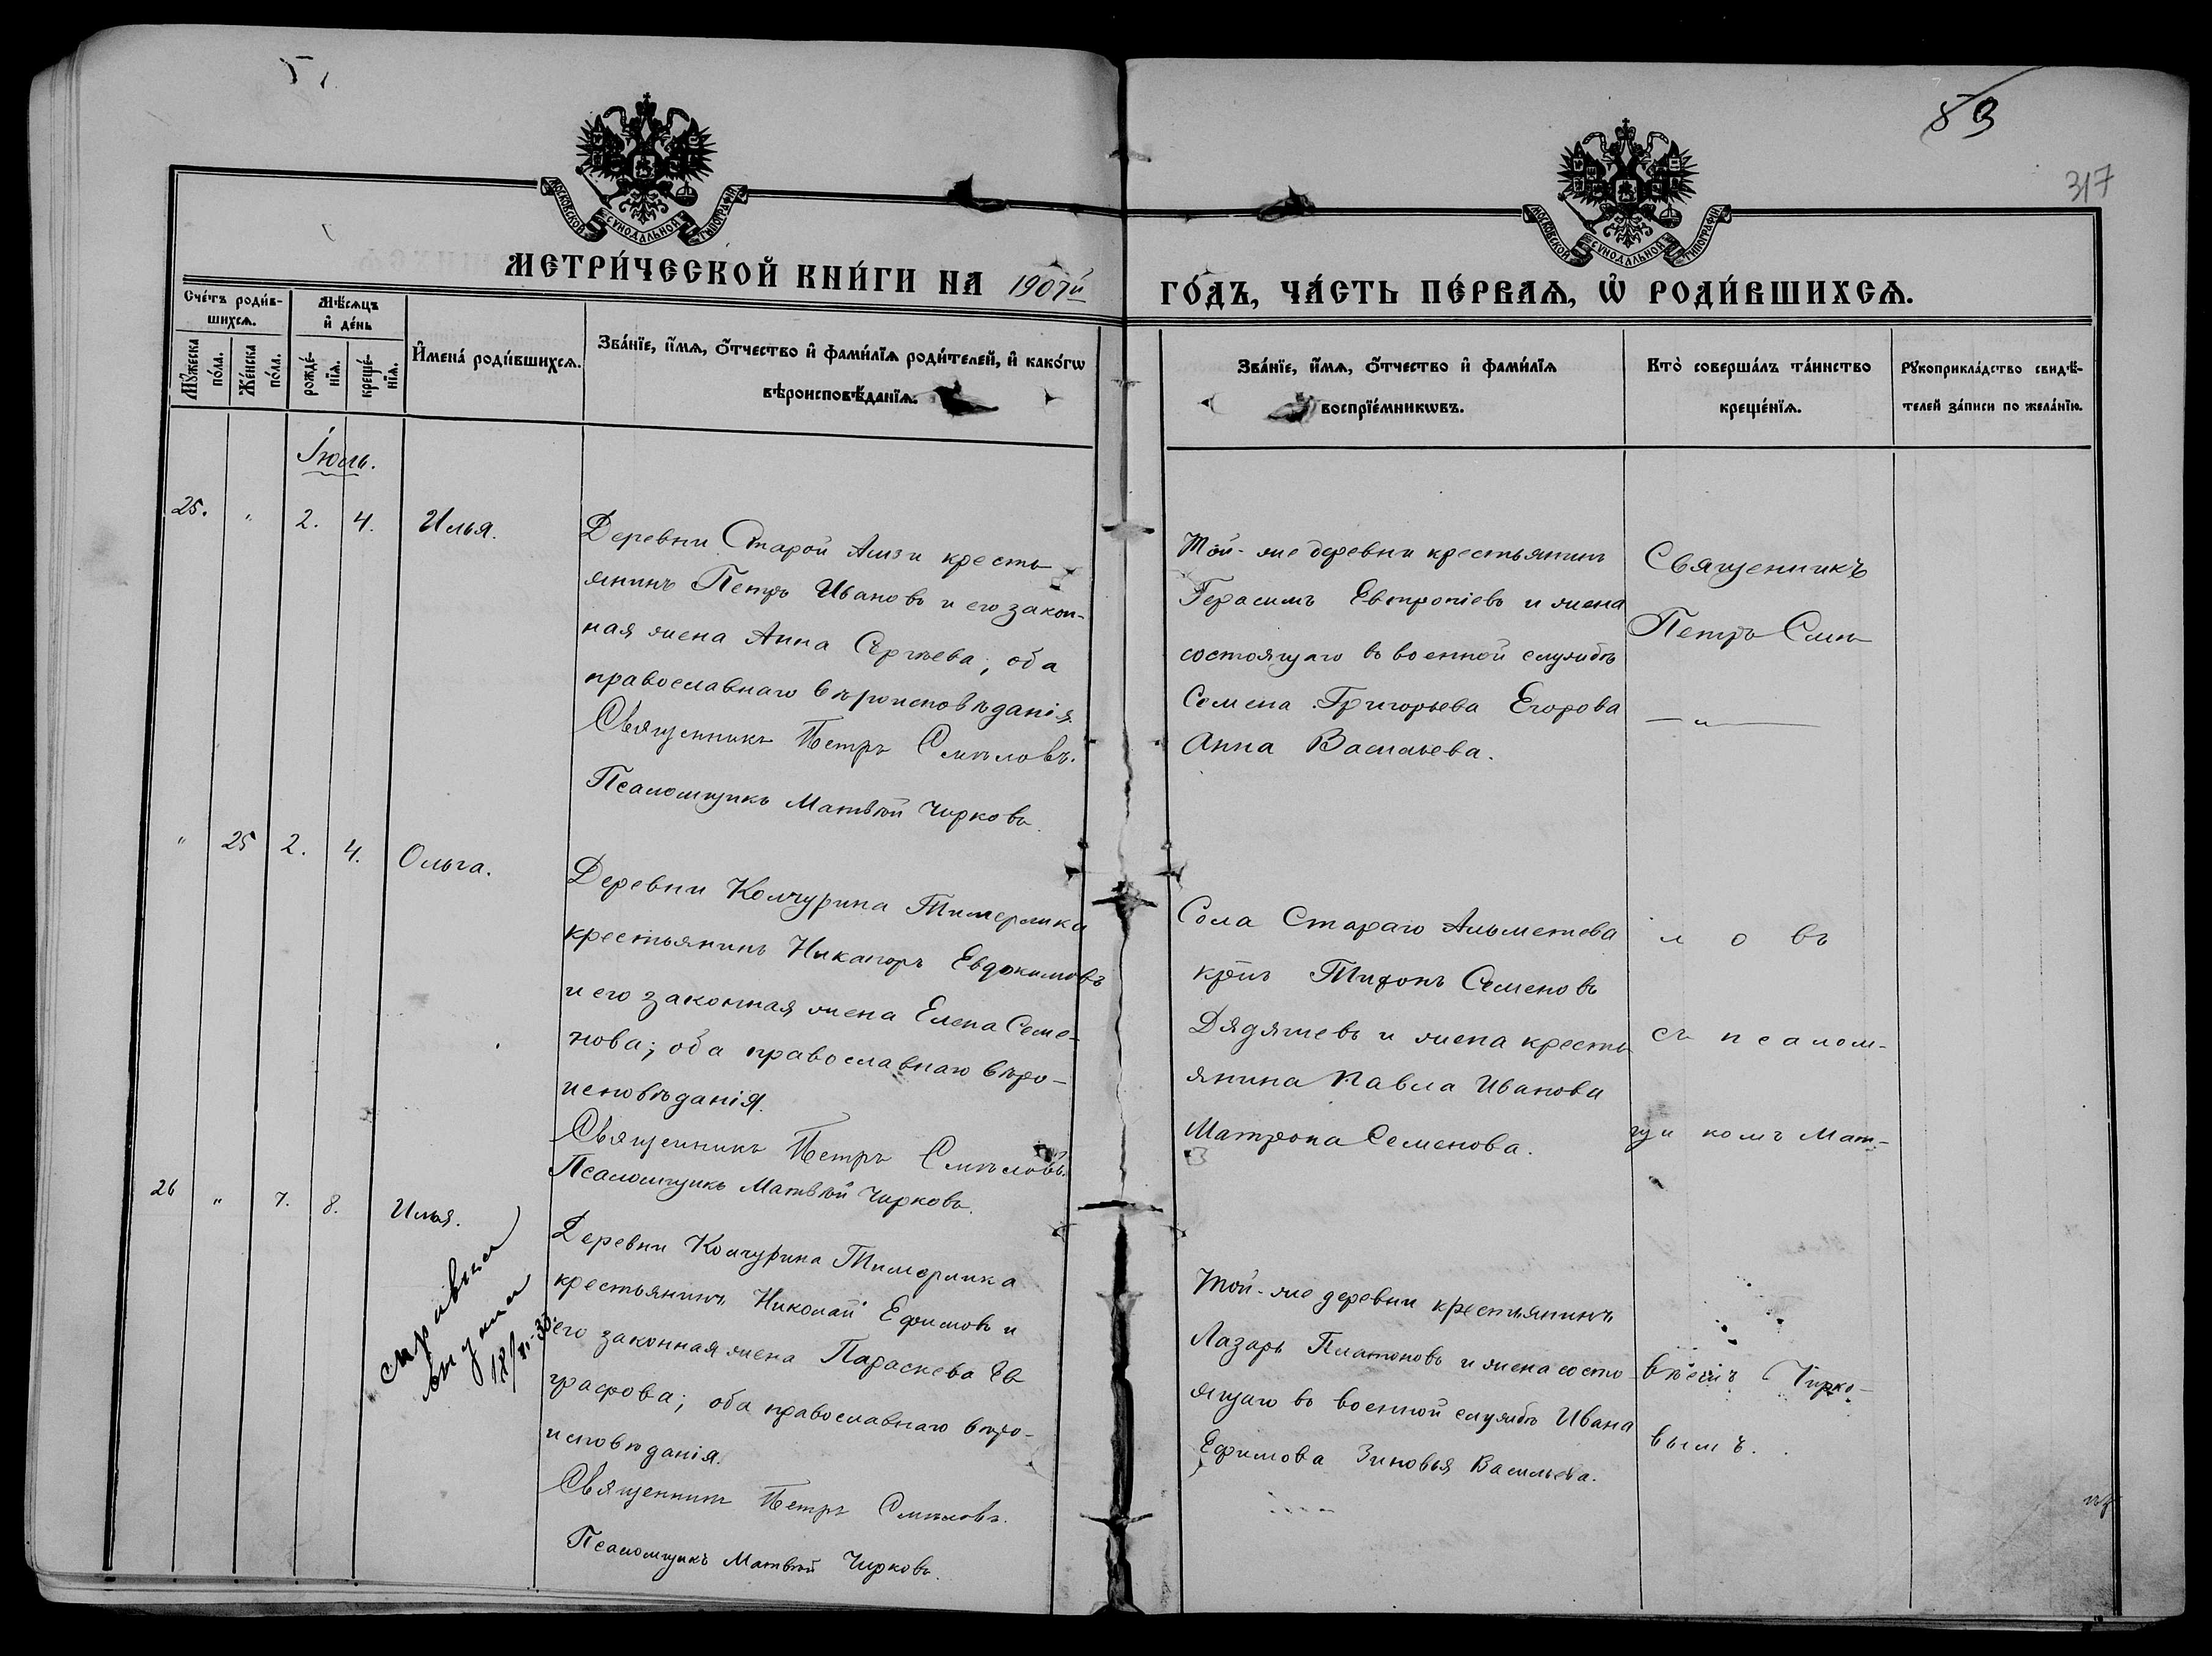 59
317
МОСКОВСКОЙ СѴНОДАЛЬНОЙ ТИПОГРАФІИ
МОСКОВСКОЙ СѴНОДАЛЬНОЙ ТИПОГРАФІИ
МЕТРИ́ЧЕСКОЙ КНИ́ГИ НА 1907й ГО́ДЪ, ЧА́СТЬ ПЕ́РВАѦ, Ѡ҆ РОДИ́ВШИХСѦ.
Сче́тъ роди́в-
шихсѧ.
Мꙋ́жеска
по́ла.
Же́нска
по́ла.
Мѣ́сѧцъ
и҆ де́нь
рожде́-
нїѧ.
креще́-
нїѧ.
И҆мена̀ роди́вшихсѧ.
Зва́нїе, и҆́мѧ, ѻ҆́тчество и҆ фами́лїѧ роди́телей, и҆ како́гѡ
вѣроисповѣ́данїѧ.
Зва́нїе, и҆́мѧ, ѻ҆́тчество и҆ фами́лїѧ
воспрїе́мникѡвъ.
Кто̀ соверша́лъ та́инство
креще́нїѧ.
Рꙋкоприкла́дство свидѣ́-
телей за́писи по жела́нїю.
Іюль.
25. " 2. 4. Илья.
Деревни Старой Амзи кресть
янинъ Петръ Ивановъ и его закон-
ная жена Анна Сергѣева; оба
православнаго вѣроисповѣданія.
Священникъ Петръ Смѣловъ.
Псаломщикъ Матвѣй Чирковъ.
Той-же деревни крестьянинъ
Герасимъ Евтропіевъ и жена
состоящаго въ военной службѣ
Семена Григорьева Егорова
Анна Васильева.
Священникъ
Петръ Смѣ-
— " —
" 25 2. 4. Ольга.
Деревни Колчурина Тимерлика
крестьянинъ Никаноръ Евдокимовъ
и его законная жена Елена Семе-
нова; оба православнаго вѣро-
исповѣданія.
Священникъ Петръ Смѣловъ.
Псаломщикъ Матвѣй Чирковъ.
Села Стараго Альметева
кр̃нъ Тихонъ Семеновъ
Дядяшевъ и жена кресть
янина Павла Иванова
Матрона Семенова.
л о въ
съ псалом-
щи комъ Мат-
26 " 7. 8. Илья.
справка
18/XI-33.
Деревни Колчурина Тимерлика
крестьянинъ Николай Ефимовъ и
его законная жена Параскева Ев
графова; оба православнаго вѣро-
исповѣданія.
Священникъ Петръ Смѣловъ.
Псаломщикъ Матвѣй Чирковъ.
Той-же деревни крестьянинъ
Лазарь Платоновъ и жена состо
ящаго въ военной службѣ Ивана
Ефимова Зиновья Васильева.
вѣемъ Чирко-
вымъ.